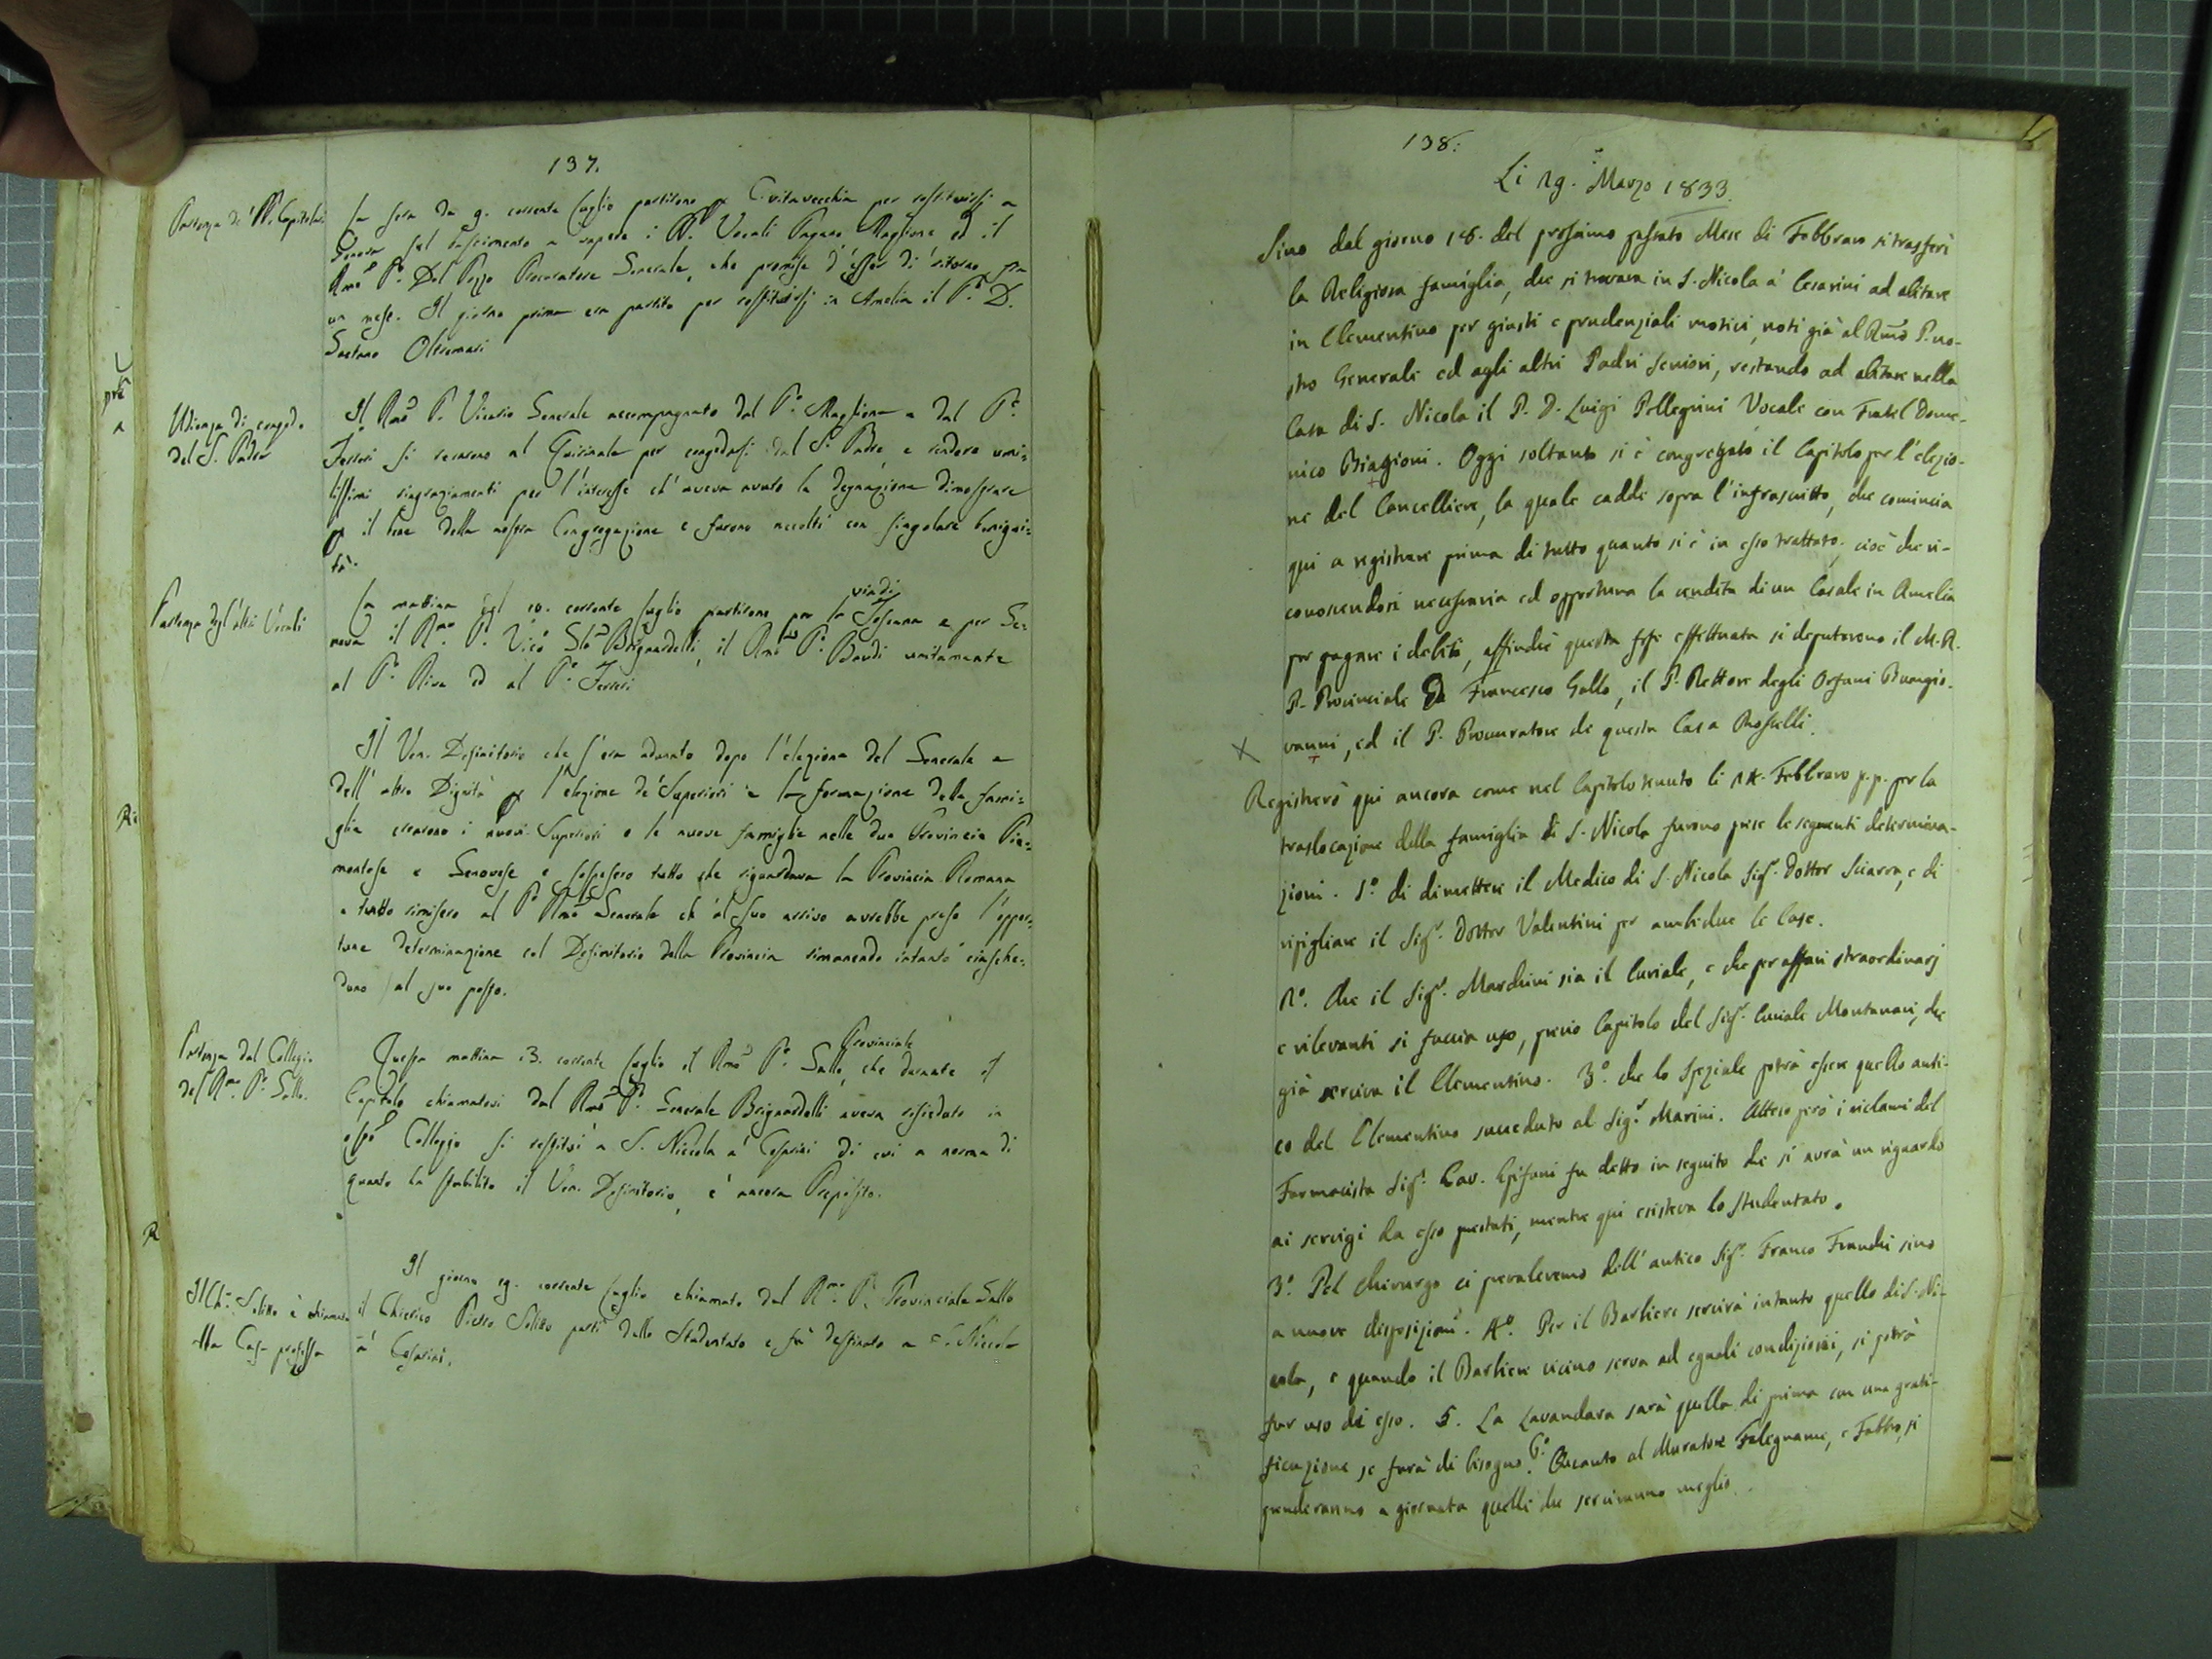 137.
Partenza de' PP. Capitolari
La sera da 9. corrente luglio partirono p Civitavecchia per restituirsi a
Genova sul bastimento a vapore i PP. Vocali Pagano Maglione ed il
Rmo Pe. Dal Pozzo Procuratore Generale, che promise d'esser di ritorno fra
un mese. Il giorno prima era partito per restituirsi in Amelia il Pe. D.
Gaetano Oltremari
Udienza di congedo
del S. Padre
Il Rmo P. Vicario Generale accompagnato dal Pe. Maglione e dal Pe.
Ferreri si recarono al Quirinale per congedarsi dal S. Padre, e rendere umi=
lissimi ringraziamenti per l'interesse ch'aveva avuto la degnazione dimostrare
p il bene della nostra Congregazione e furono accolti con singolare benigni=
tà.
Partenza degl'altri Vocali
viadi
La mattina del 10. corrente luglio partirono per la Toscana e per Ge=
nova il Rmo P. Vico Gle Brignardelli, il Rmo Pe. Baudi unitamente
al Pe. Riva ed al Pe. Ferreri
Il Ven. Definitorio che s'era adunato dopo l'elezione del Generale e
dell'altre Dignità p l'elezione de' Superiori e la formazione della fami=
glia crearono i nuovi Superiori e le nuove famiglie nelle due Provincie Pie=
montese e Genovese e sospesero tutto che riguardava la Provincia Romana
e tutto rimisero al Pe Rmo Generale ch'al suo arrivo avrebbe prese l'oppor=
tune determinazione col Definitorio della Provincia rimanendo intanto ciasche=
duno al suo posto.
Partenza dal Collegio
del Rmo. Pe. Gallo.
Provinciale
Questa mattina 13. corrente luglio il Rmo Pe. Gallo, che durante il
Capitolo chiamatovi dal Rmo Pe. Generale Brignardelli aveva risieduto in
esso Collegio si restituì a S. Niccola a' Cesarini di cui a norma di
quanto ha stabilito il Ven. Definitorio, è ancora Preposito.
Il Ch. Solito è chiamato
alla Casa professa
Il giorno 19. corrente luglio chiamato dal Rmo. Pe. Provinciale Gallo
il Chierico Pietro Solito partì dallo Studentato e fù destinato a S. Niccola
a' Cesarini.
138.
Li 29. Marzo 1833.
Sino dal giorno 18. del prossimo passato Mese di Febbraro si trasferì
la Religiosa famiglia, che si trovava in S. Nicola a' Cesarini ad abitare
in Clementino per giusti e prudenziali motivi, noti già al Rmo P. no-
stro Generale ed agli altri Padri seniori, restando ad abitare nella
Casa di S. Nicola il P. D. Luigi Pellegrini Vocale con Fratel Dome-
nico Biagioni. Oggi soltanto si è congregato il Capitolo per l'elezio-
ne del Cancelliere, la quale cadde sopra l'infrascritto, che comincia
qui a registrare prima di tutto quanto si è in esso trattato. cioè che ri-
conoscendosi necessaria ed opportuna la vendita di un Casale in Amelia
per pagare i debiti, affinchè questa fosse effettuata si deputarono il M. R.
P. Provinciale D. Francesco Gallo, il P. Rettore degli Orfani Buongio-
vanni, ed il P. Procuratore di questa Casa Rosselli.
X
Registrerò qui ancora come nel Capitolo tenuto li 14. Febbraro p.p. per la
traslocazione della famiglia di S. Nicola furono prese le seguenti determina-
zioni. 1.o di dimettere il Medico di S. Nicola Sigr. Dottor Sciarra, e di
ripigliare il Sigr. Dottor Valentini per ambedue le Case.
2o. Che il Sigr. Marchini sia il Curiale, e che per affari straordinarj
e rilevanti si faccia uso, previo Capitolo del Sigr. Curiale Montanari, che
già serviva il Clementino. 3.o che lo Speziale potrà essere quello anti-
co del Clementino succeduto al Sigr. Marini. Atteso però i reclami del
Farmacista Sigr. Cav. Epifani fu detto in seguito che si avrà un riguardo
ai servigi da esso prestati, mentre qui esisteva lo Studentato.
3.o Pel Chirurgo ci prevaleremo dell'antico Sigr. Franco Franchi sino
a nuove disposizioni. 4o. Per il Barbiere servirà intanto quello di S. Ni-
cola, e quando il Barbiere vicino serva ad eguali condizioni, si potrà
far uso di esso. 5. La Lavandara sarà quella di prima con una grati-
ficazione se farà di bisogno. 6.o Quanto al Muratore Falegname, e Fabbro, si
prenderanno a giornata quelli che serviranno meglio.